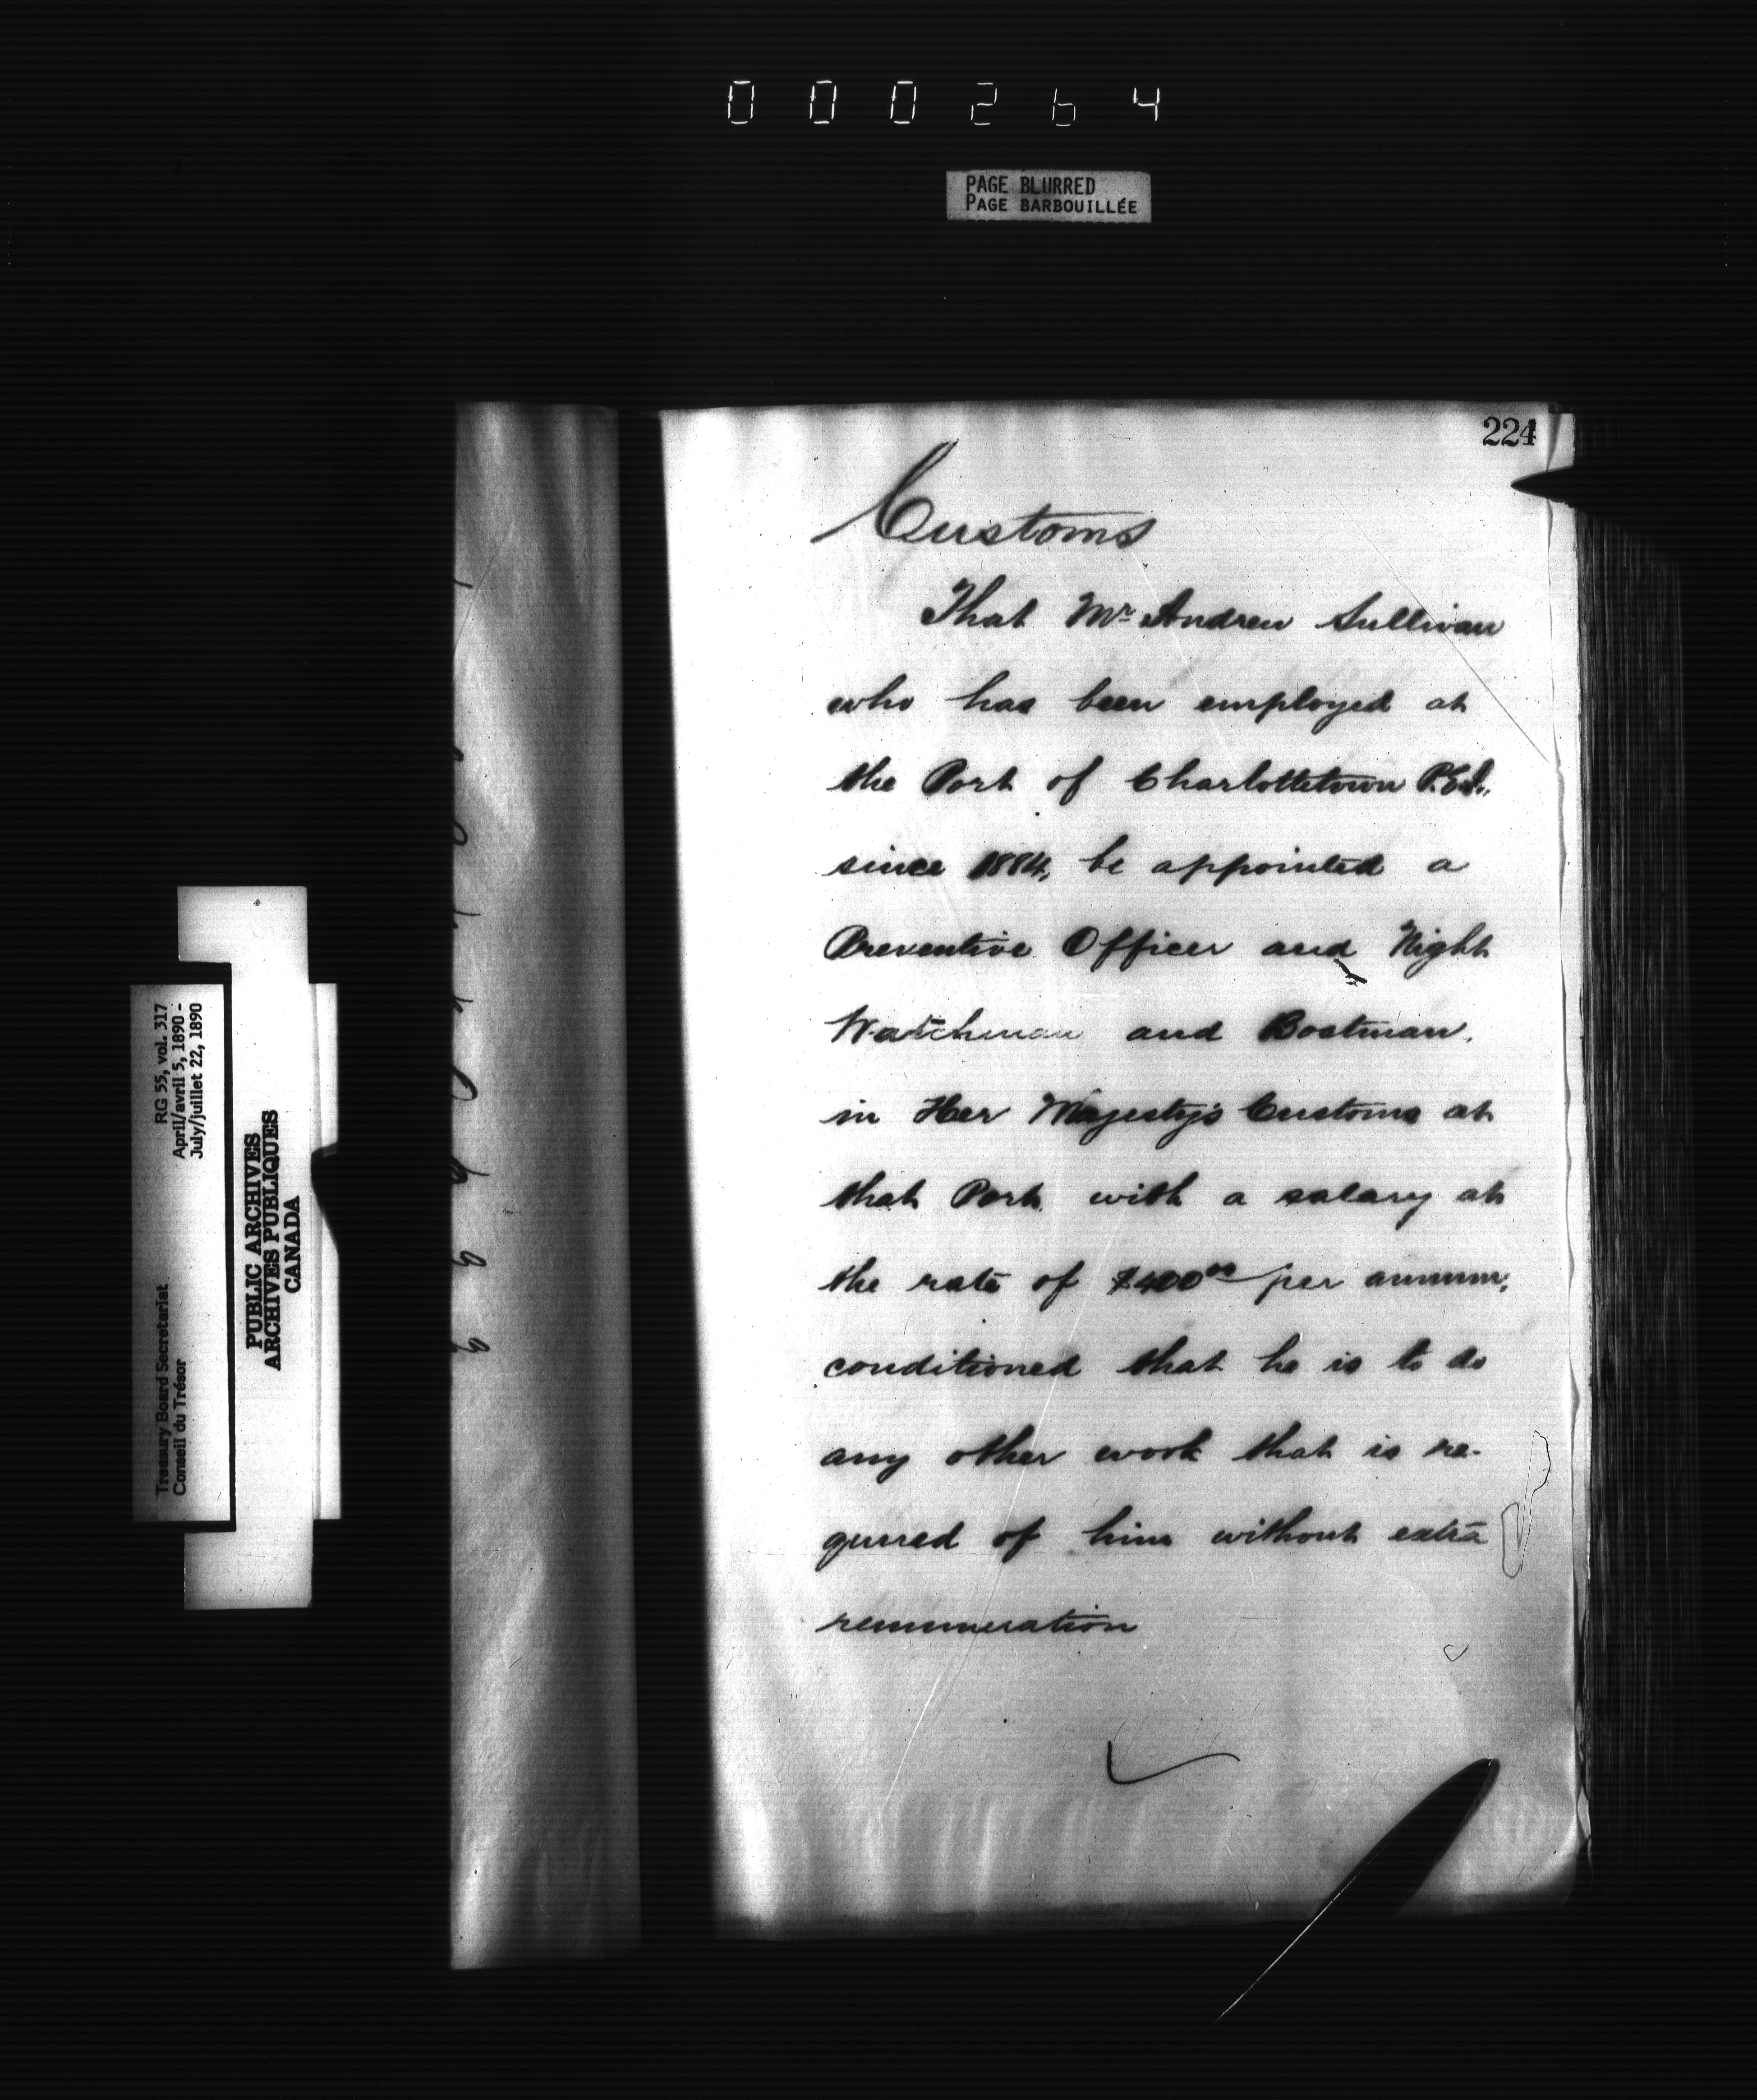 000264
PAGE BLURRED
PAGE BARBOUILLÉE
224
Customs
That Mr Andrew Sullivan
who has been employed at
the Port of Charlottetown P.E.I.,
since 1884, be appointed a
Preventive Officer and Night
Watchman and Boatman,
in Her Majesty's Customs at
that Port with a salary at
the rate of $400 00 per annum,
conditioned that he is to do
any other work that is re-
quired of him without extra
remuneration
RG 55, vol. 317
April/avril 5, 1890 -
July/juillet 22, 1890
Treasury Board Secretariat
Conseil du Trésor
PUBLIC ARCHIVES
ARCHIVES PUBLIQUES
CANADA